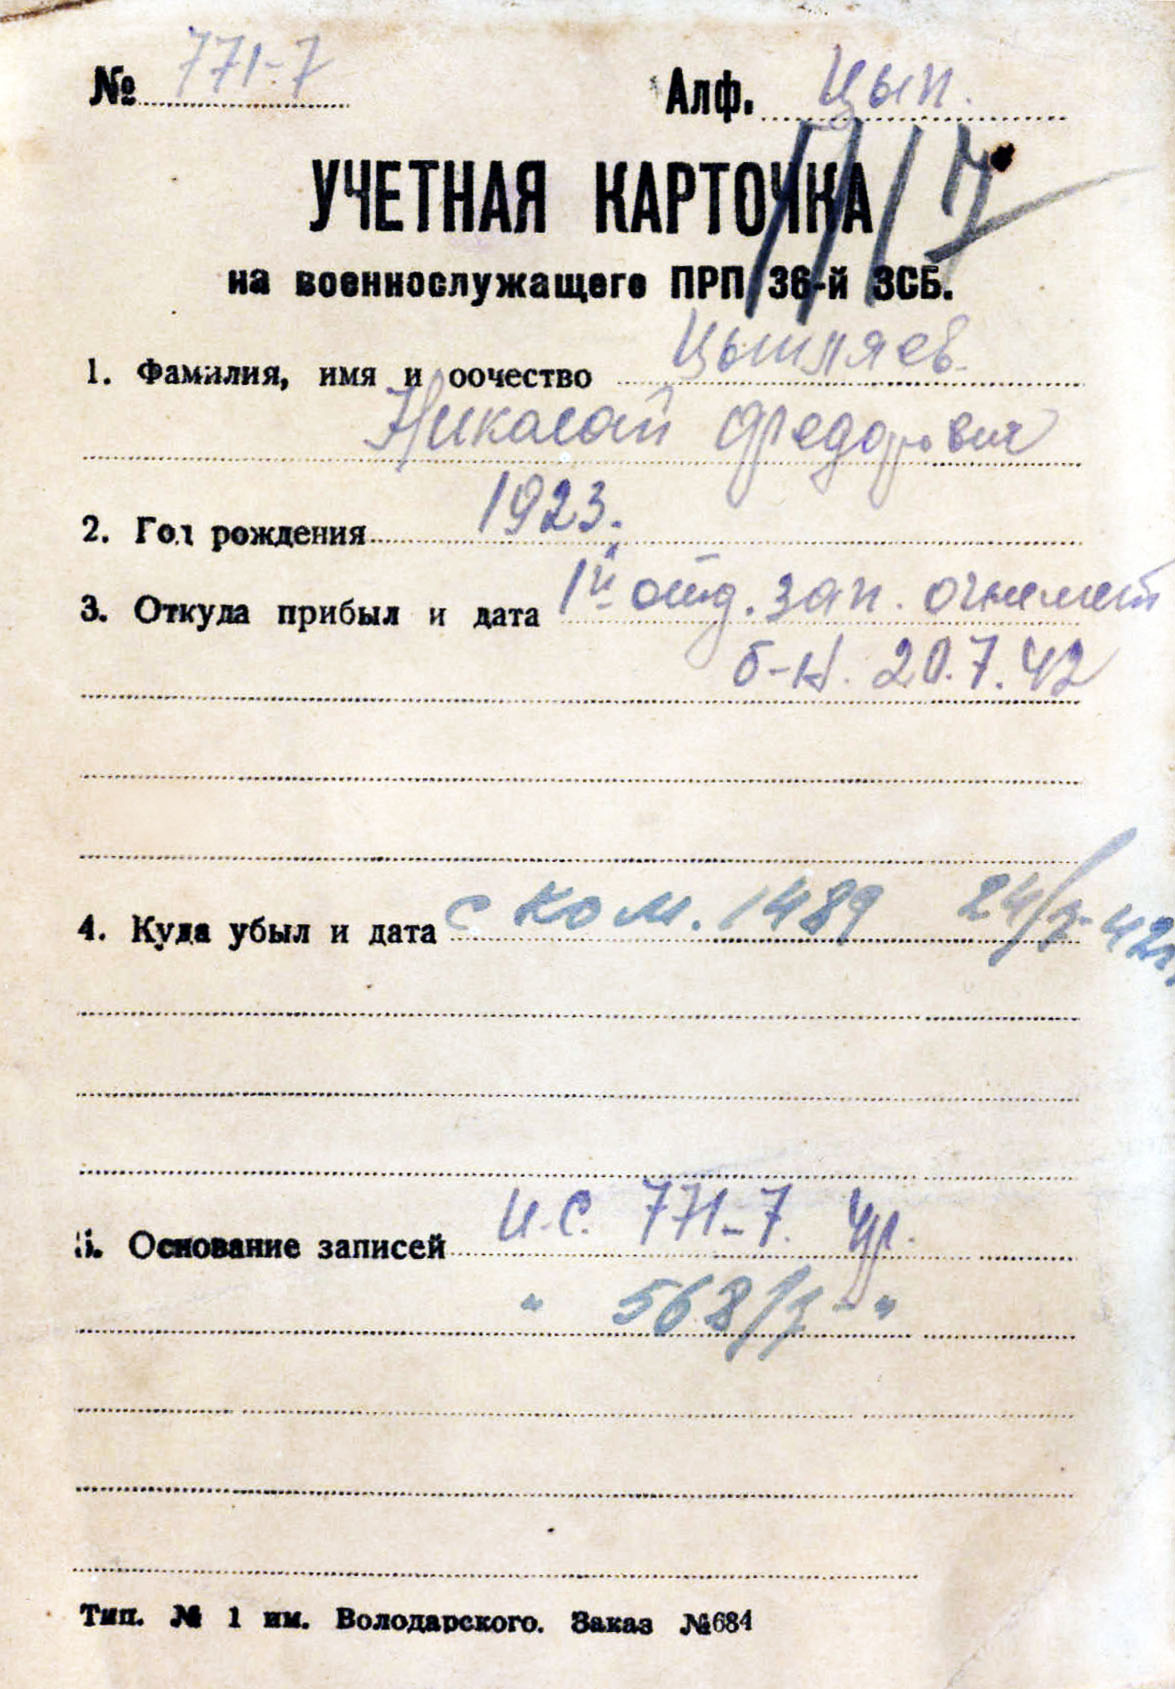 № 771-7 Алф. Цып.
УЧЕТНАЯ КАРТОЧКА
на военнослужащего ПРП 36-й ЗСБ.
1. Фамилия, имя и оочество Цыпляев
Николай Федорович
2. Год рождения 1923.
3. Откуда прибыл и дата 1й отд. зап. огнемет
б-н. 20.7.42
4. Куда убыл и дата с ком. 1489 24/7-42г.
5. Основание записей И.С. 771-7.
" 568/7 - "
Тип. № 1 им. Володарского. Заказ №684